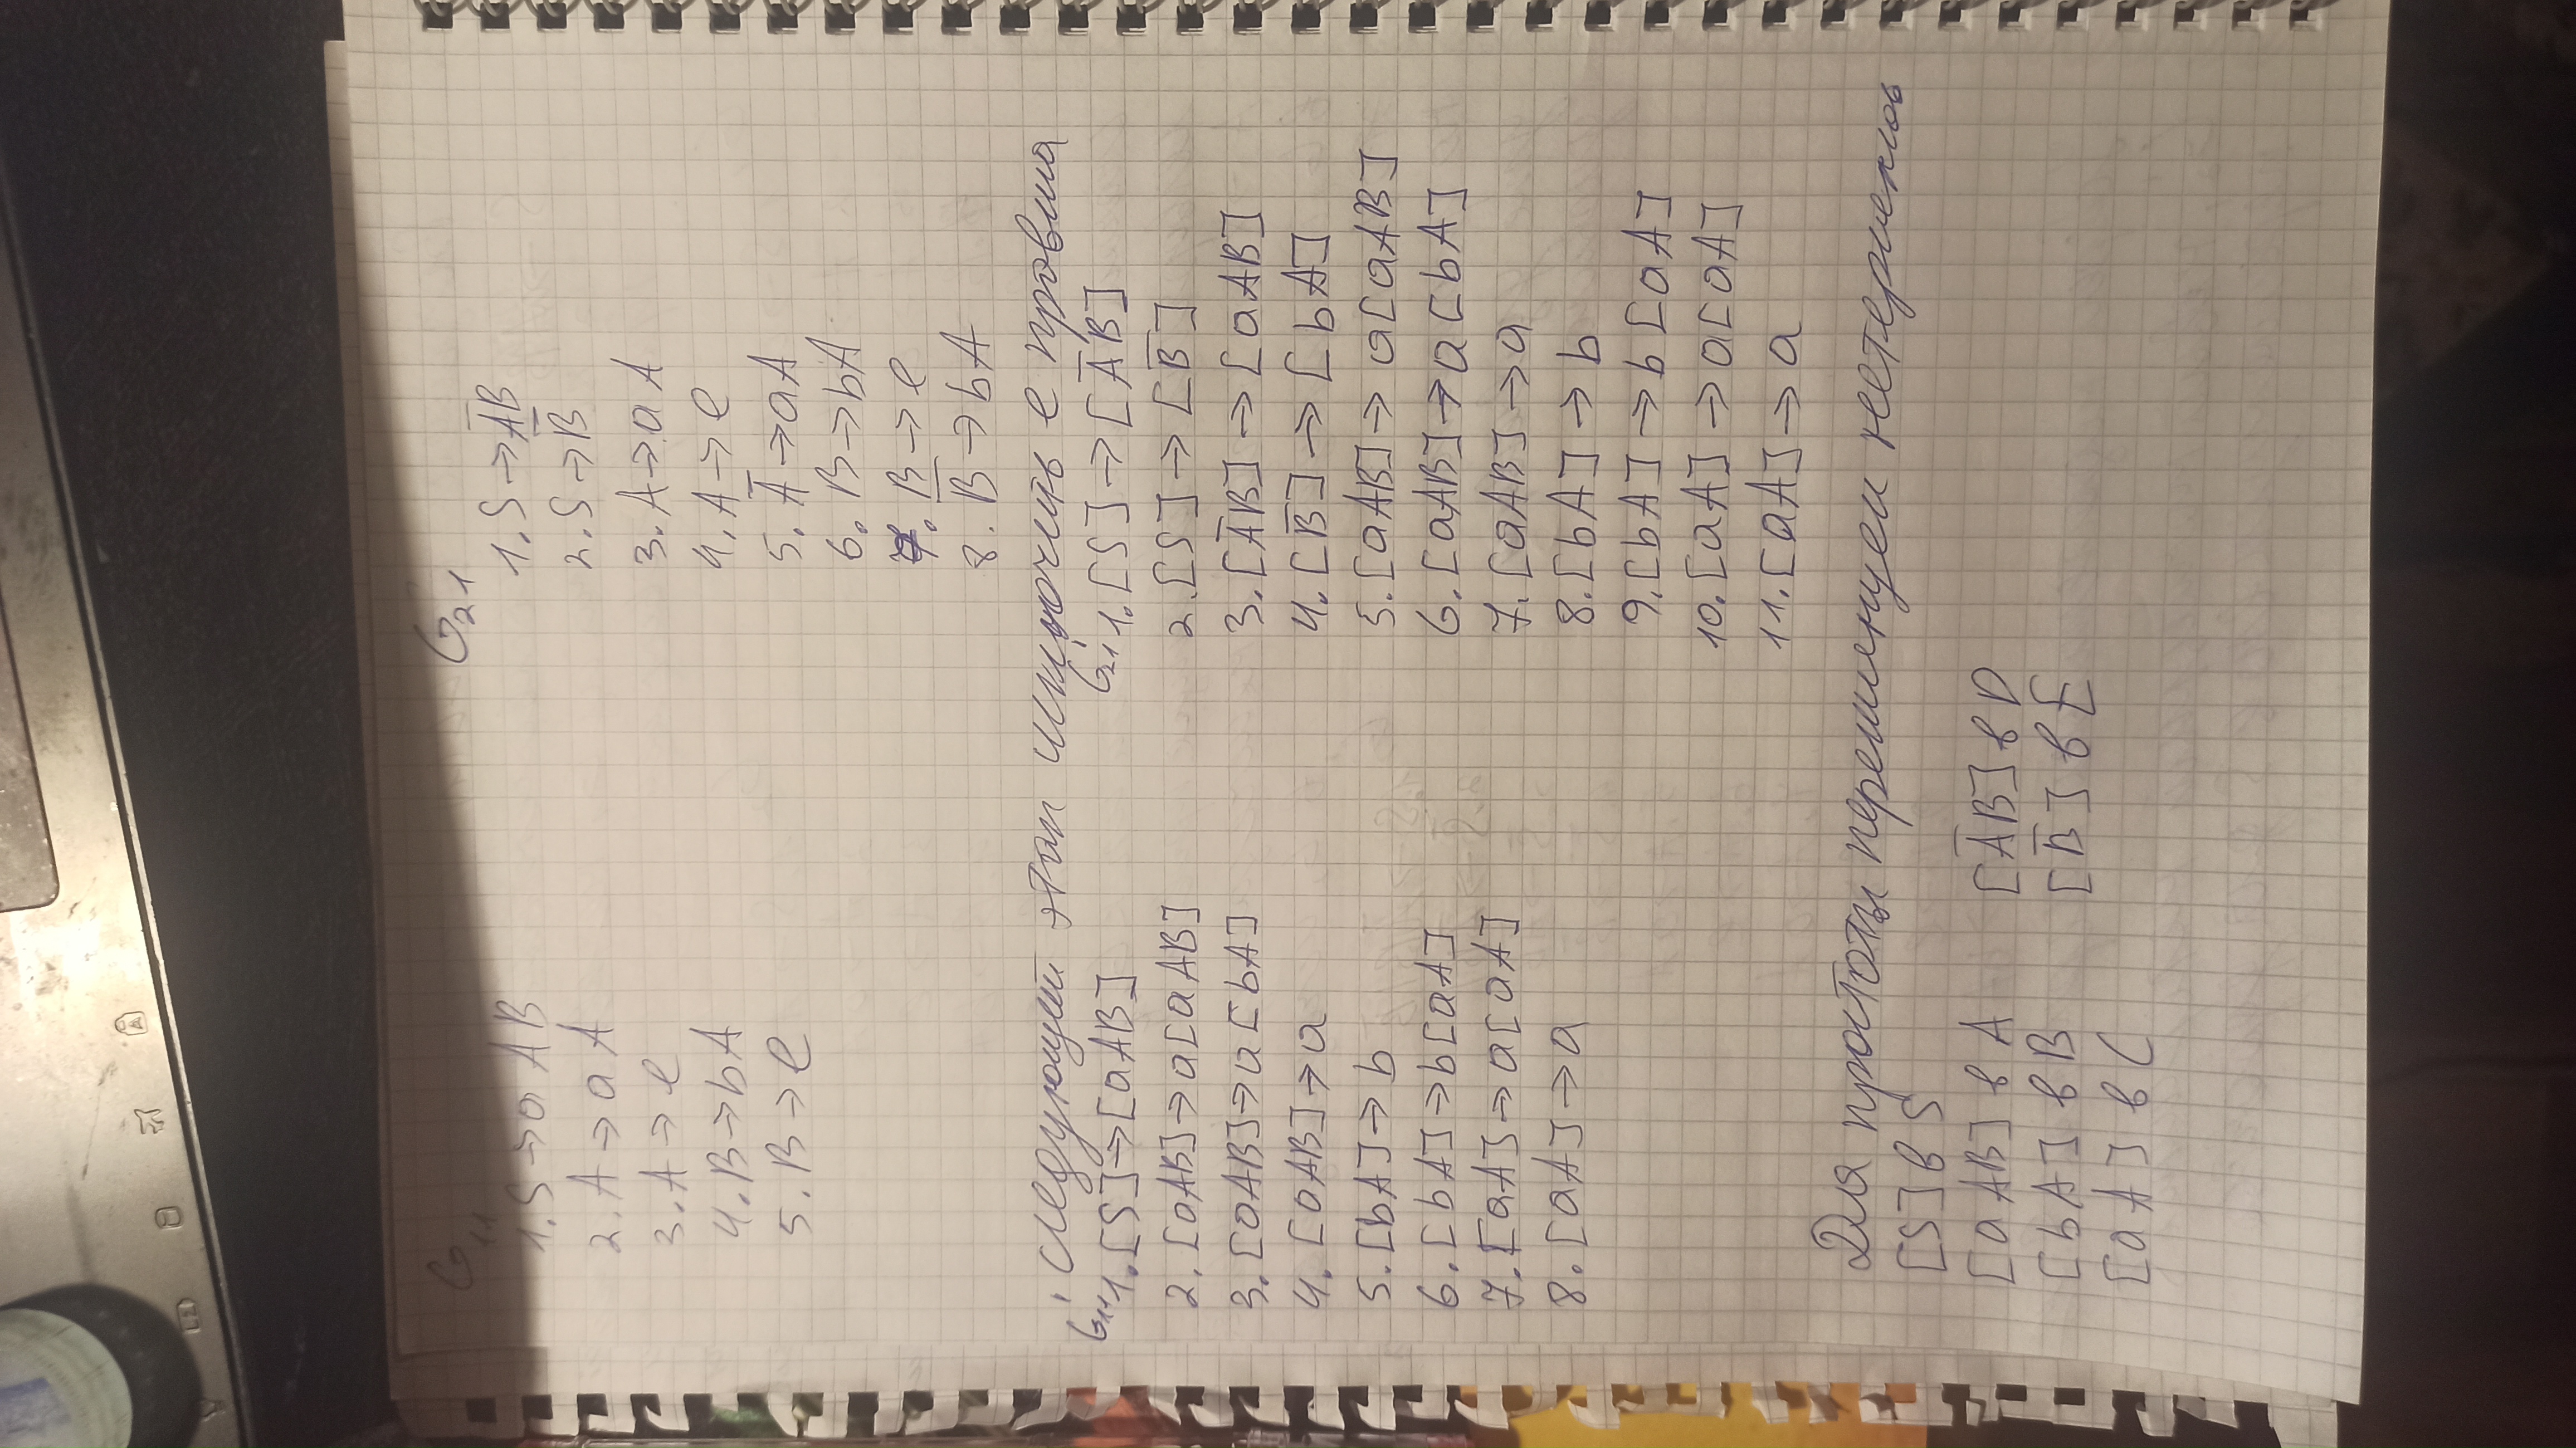 G₁₁
1. S → aAB
2. A → aA
3. A → e
4. B → bA
5. B → e
G₂₁
1. S → A̅B
2. S → B̅
3. A → aA
4. A → e
5. A̅ → aA
6. B → bA
7. B → e
8. B̅ → bA
Следующей этап исключить e правила
G'₁₁ 1. [S] → [aAB]
2. [aAB] → a[aAB]
3. [aAB] → a[bA]
4. [aAB] → a
5. [bA] → b
6. [bA] → b[aA]
7. [aA] → a[aA]
8. [aA] → a
G'₂₁ 1. [S] → [A̅B]
2. [S] → [B̅]
3. [A̅B] → [aAB]
4. [B̅] → [bA]
5. [aAB] → a[aAB]
6. [aAB] → a[bA]
7. [aAB] → a
8. [bA] → b
9. [bA] → b[aA]
10. [aA] → a[aA]
11. [aA] → a
Для простоты переминуем
[S] в S
[aAB] в A [A̅B] в D
[bA] в B [B̅] в E
[aA] в C